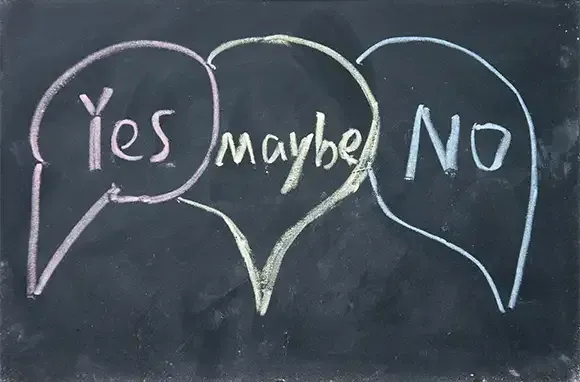 Yes maybe NO